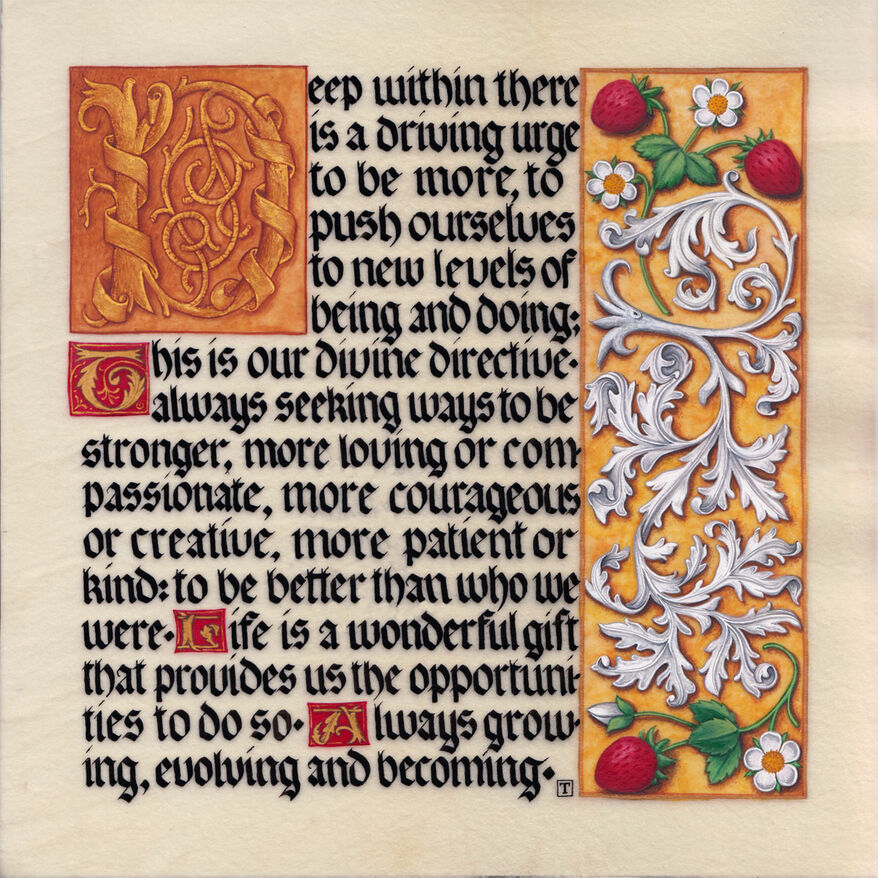 Deep within there
is a driving urge
to be more, to
push ourselves
to new levels of
being and doing;
This is our divine directive·
always seeking ways to be
stronger, more loving or com
passionate, more courageous
or creative, more patient or
kind: to be better than who we
were· Life is a wonderful gift
that provides us the opportuni
ties to do so· Always grow
ing, evolving and becoming·
T